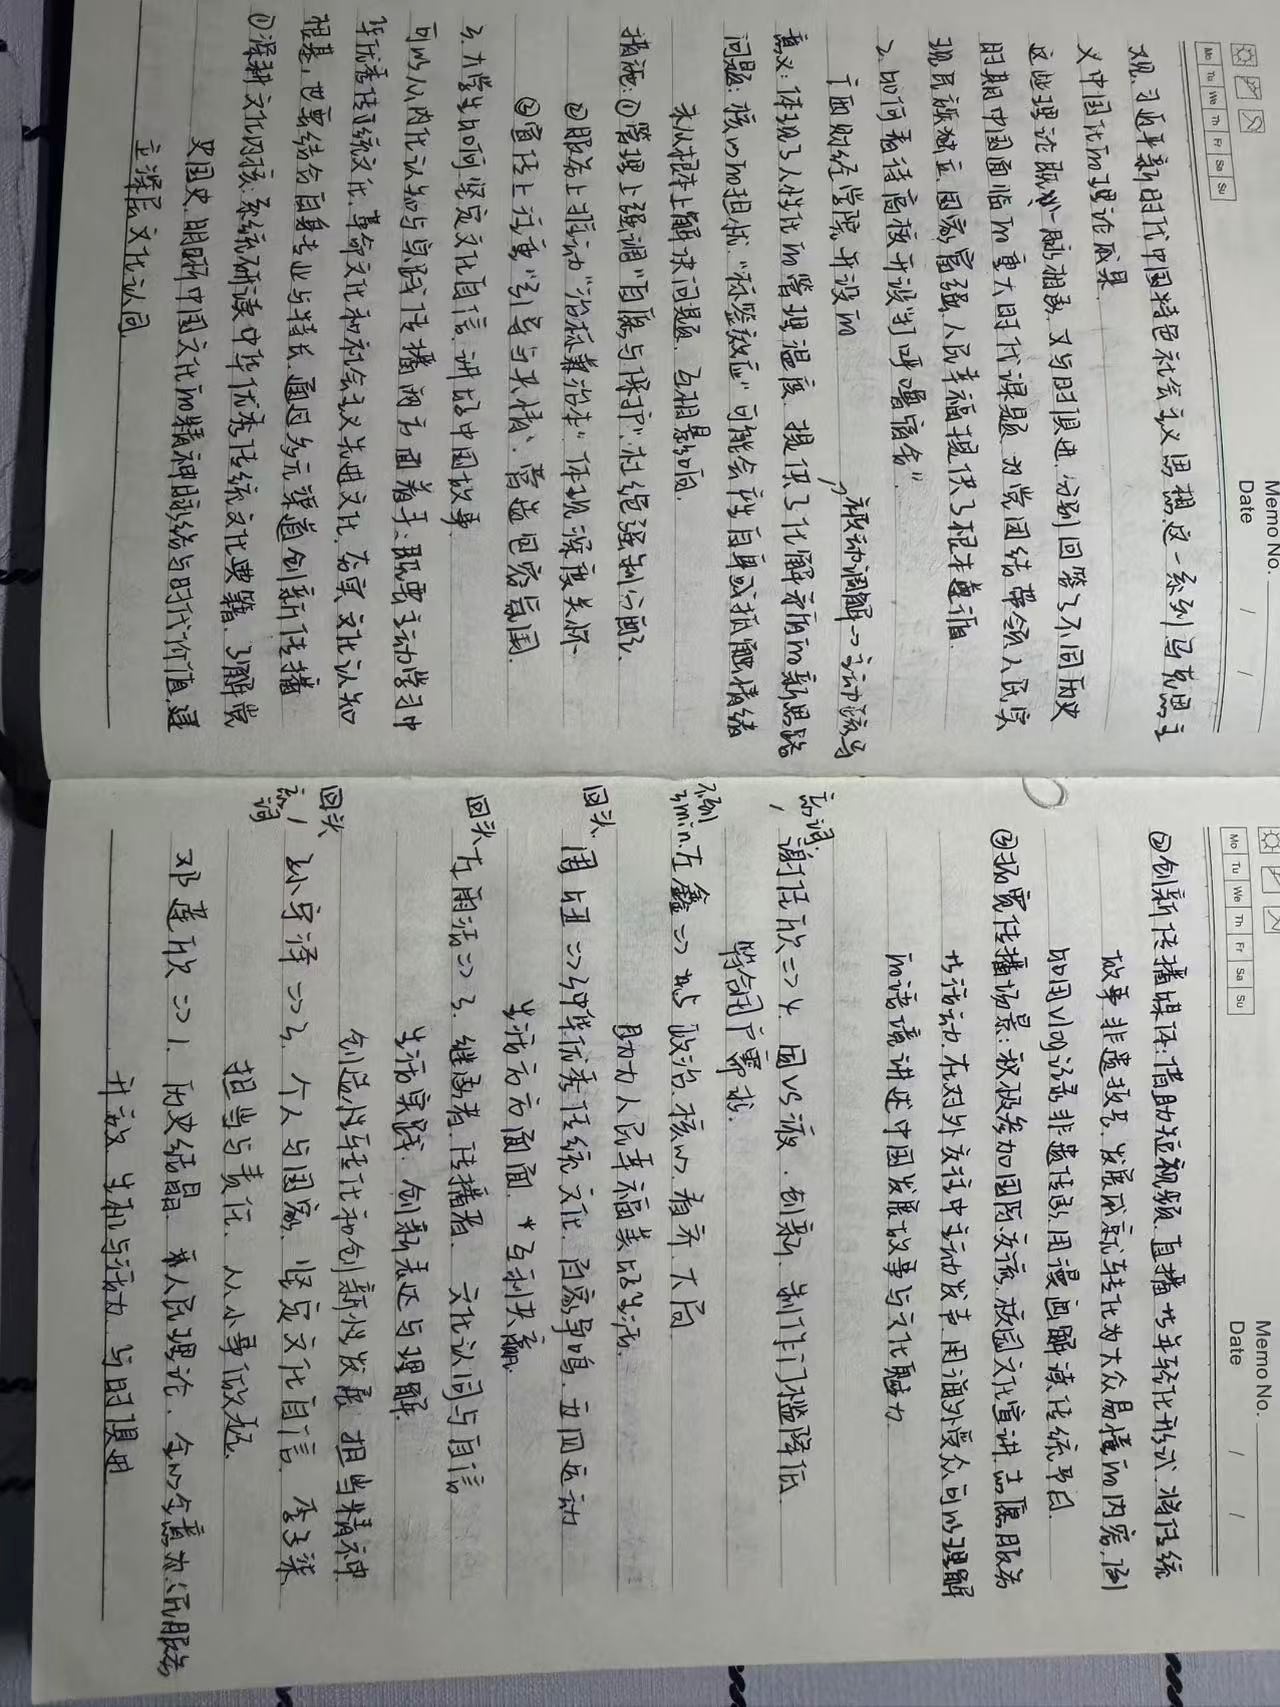 Memo No.
Date / /
Mo Tu We Th Fr Sa Su
观、习近平新时代中国特色社会主义思想这一系列马克思主
义中国化的理论成果.
这些理论既一脉相承又与时俱进,分别回答了不同历史
时期中国面临的重大时代课题,为党团结带领人民实
现民族独立、国家富强、人民幸福提供了根本遵循.
2.如何看待高校开设“打呼噜宿舍”.
广西财经学院开设的
被动调解→主动疏导
意义:体现了人性化的管理温度,提供了化解矛盾的新思路
问题:核心的担忧.“标签效应”可能会产生自卑或抵触情绪
未从根本上解决问题,互相影响.
措施:①管理上强调“自愿与保护”,杜绝强制分配.
②服务上推动“治标兼治本”,体现深度关怀
③宣传上注重“引导与共情”,营造包容氛围.
3.大学生如何坚定文化自信,讲好中国故事
可以从内化认知与实践传播两方面着手:既要主动学习中
华优秀传统文化、革命文化和社会主义先进文化,夯实文化认知
根基,也要结合自身专业与特长,通过多元渠道创新传播
①深耕文化内核:系统研读中华优秀传统文化典籍、了解党
史国史,明晰中国文化的精神脉络与时代价值,建
立深层文化认同
Memo No.
Date / /
Mo Tu We Th Fr Sa Su
②创新传播媒体:借助短视频、直播等年轻化形式,将传统
故事、非遗技艺、发展成就转化为大众易懂的内容,例
如用vlog记录非遗传承,用漫画解读传统节日.
③拓宽传播场景:积极参加国际交流、校园文化宣讲、志愿服务
等活动,在对外交往中主动发声,用海外受众可以理解
的语境讲述中国发展故事与文化魅力
忘词, 谢任欣=>4. 国vs演.创新.制作门槛降低
符合用户需求.
不到3min 左鑫=>政治.核心.看齐大局
助力人民幸福美好生活.
回头 周妞=>2.中华优秀传统文化.百家争鸣.五四运动
生活方方面面.互利共赢.
回头 左雨洁=>3.继承者.传播者.文化认同与自信
生活实践.创新表达与理解.
回头 创造性转化和创新性发展.担当精神
忘词, 孙宇泽=>3.个人与国家.坚定文化自信.李子柒
担当与责任.从小事做起.
邓建欣=>1.历史结晶.来人民理论.全心全意为人民服务
开放.生机与活力.与时俱进